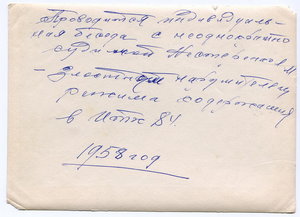 Проводится индивидуаль-
ная беседа с неоднократно
судимой Нестеренко М
- Злостным нарушителем
режима содержания
в ИТК 84.
1958 год